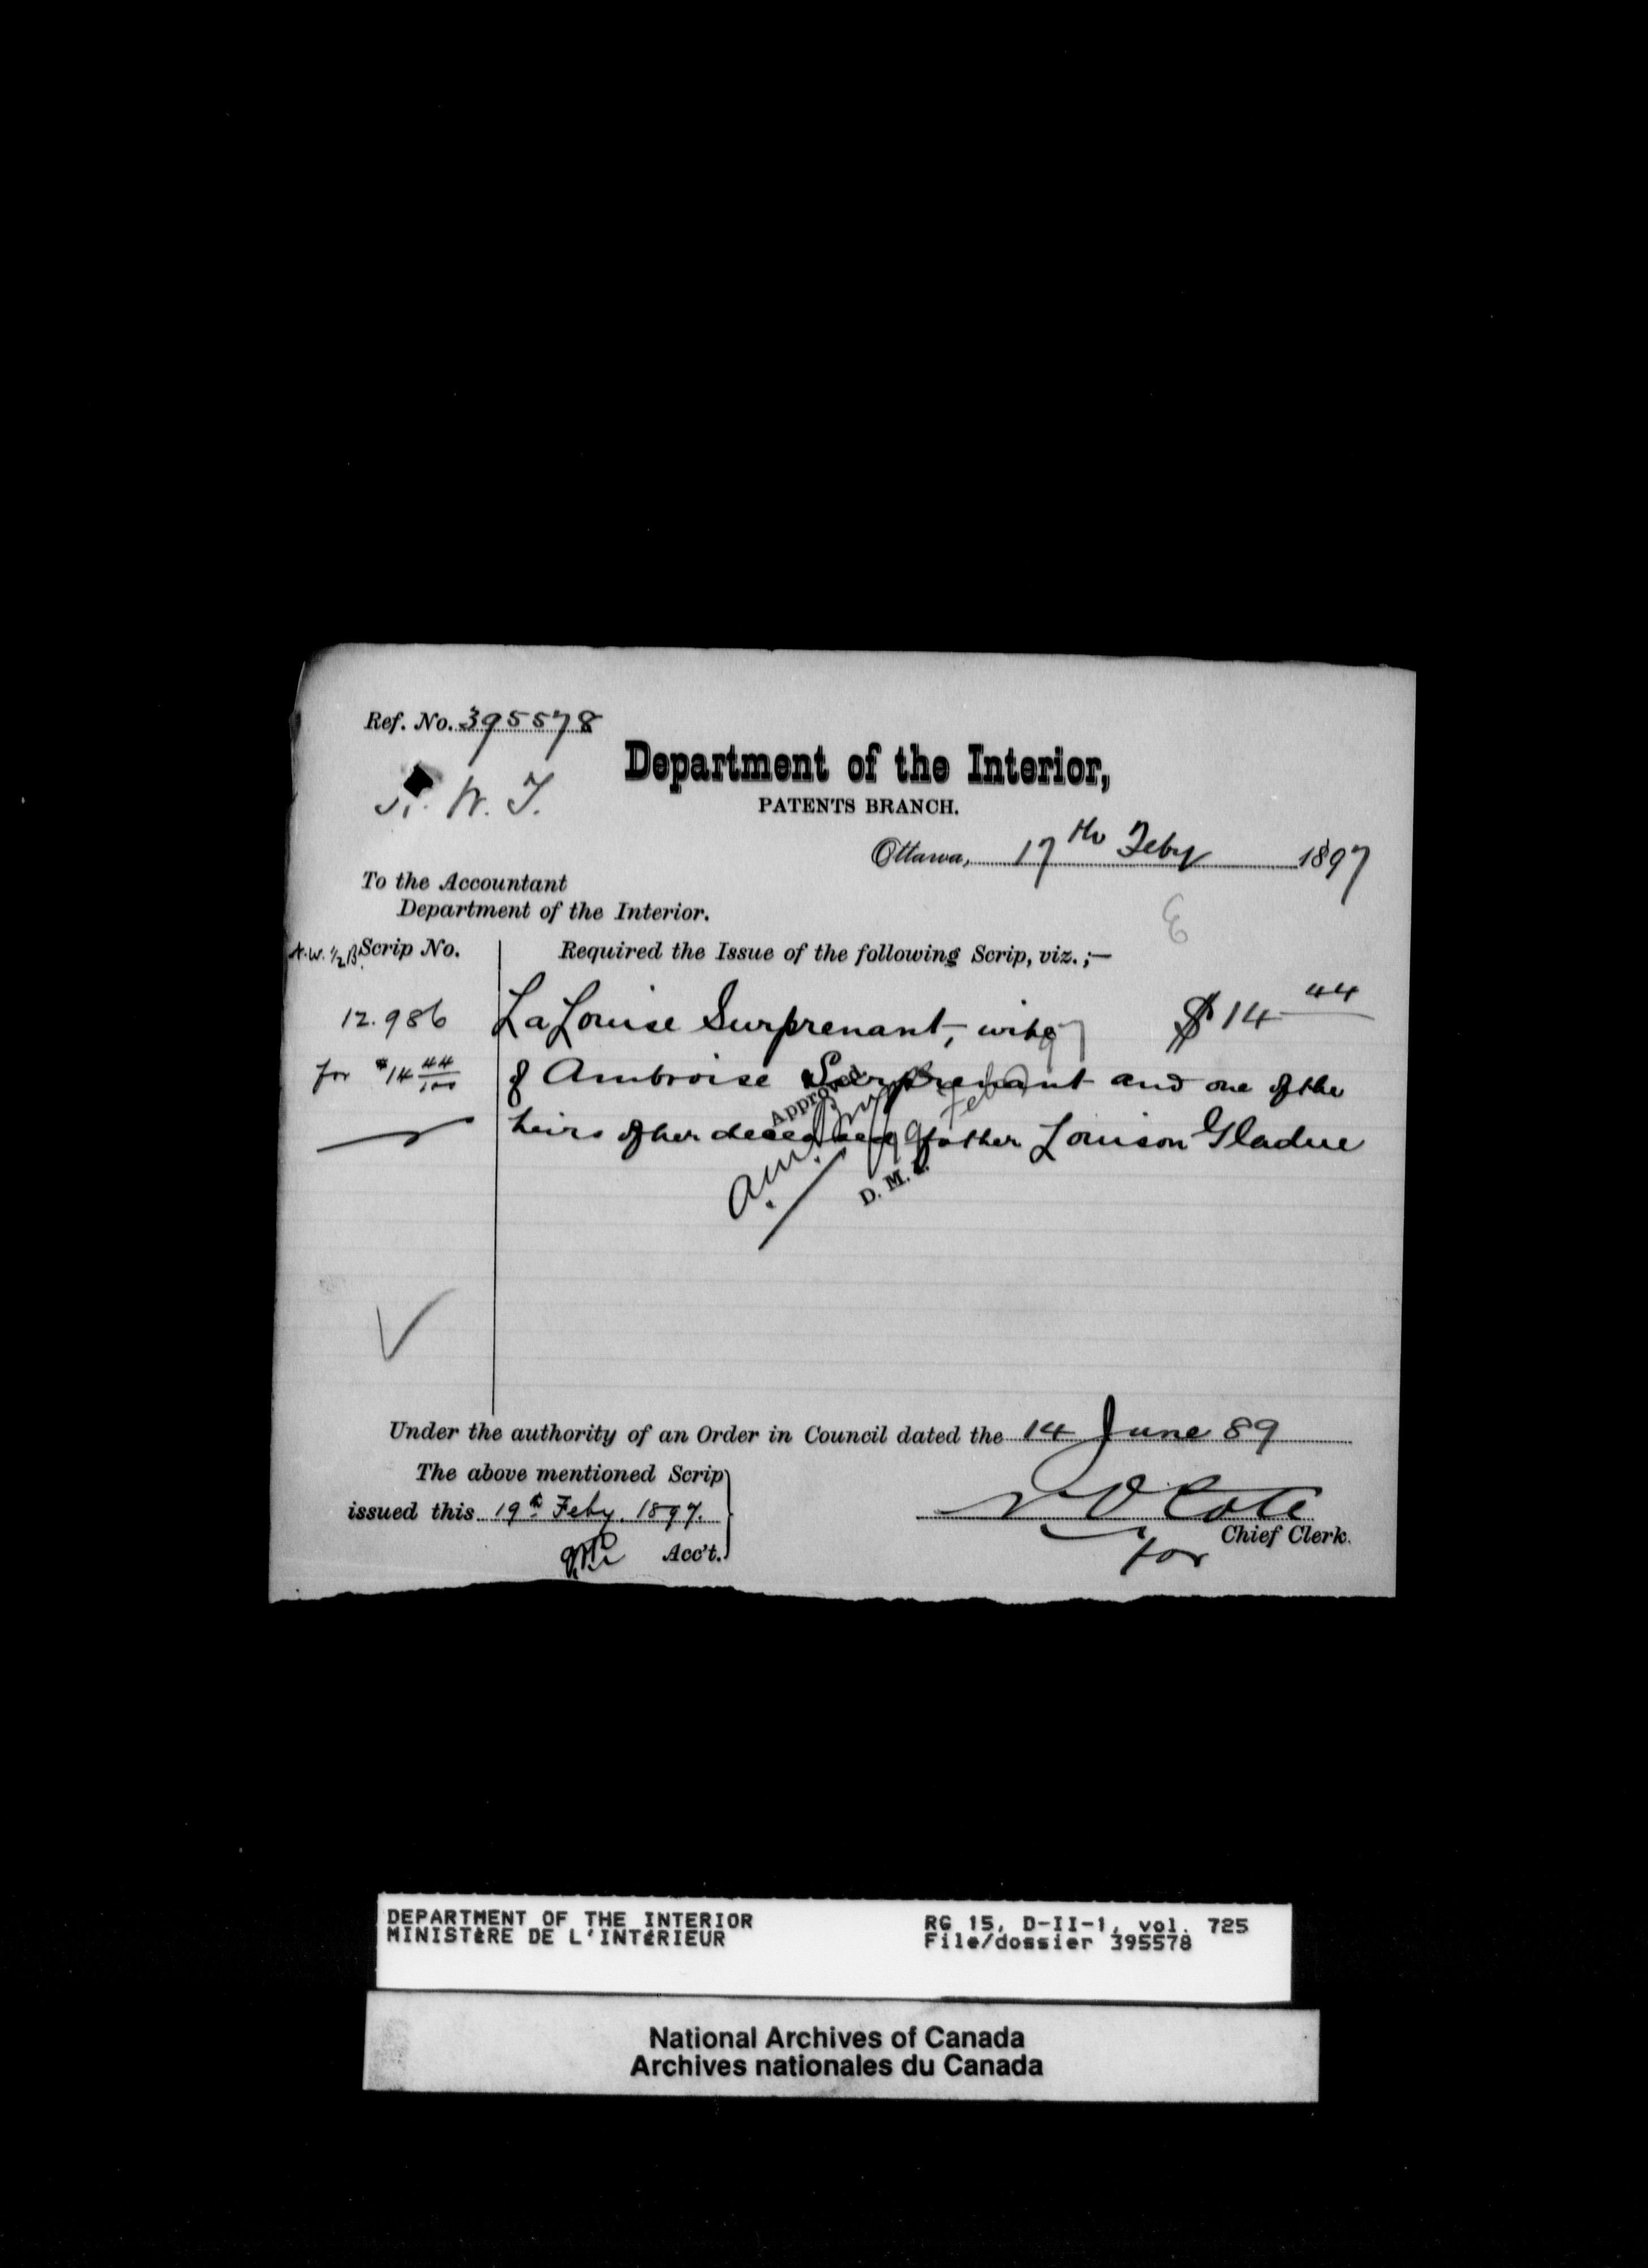 Ref. No. 395578
N. W. T.
Department of the Interior,
PATENTS BRANCH.
Ottawa, 17th Feby 1897
To the Accountant
Department of the Interior.
N.W. ½ B. Scrip No.
Required the Issue of the following Scrip, viz.;—
12.986
La Louise Surprenant, wife $14 44
for $14 44/100
of Ambroise Surprenant and one of the
heirs of her deceased father Louison Gladue
Approved
D. M. I.
Under the authority of an Order in Council dated the 14 June 89
The above mentioned Scrip
issued this 19th Feby. 1897.
Acc't.
N. O Coté
for Chief Clerk.
DEPARTMENT OF THE INTERIOR
MINISTÈRE DE L'INTÉRIEUR
RG 15, D-II-1, vol. 725
File/dossier 395578
National Archives of Canada
Archives nationales du Canada